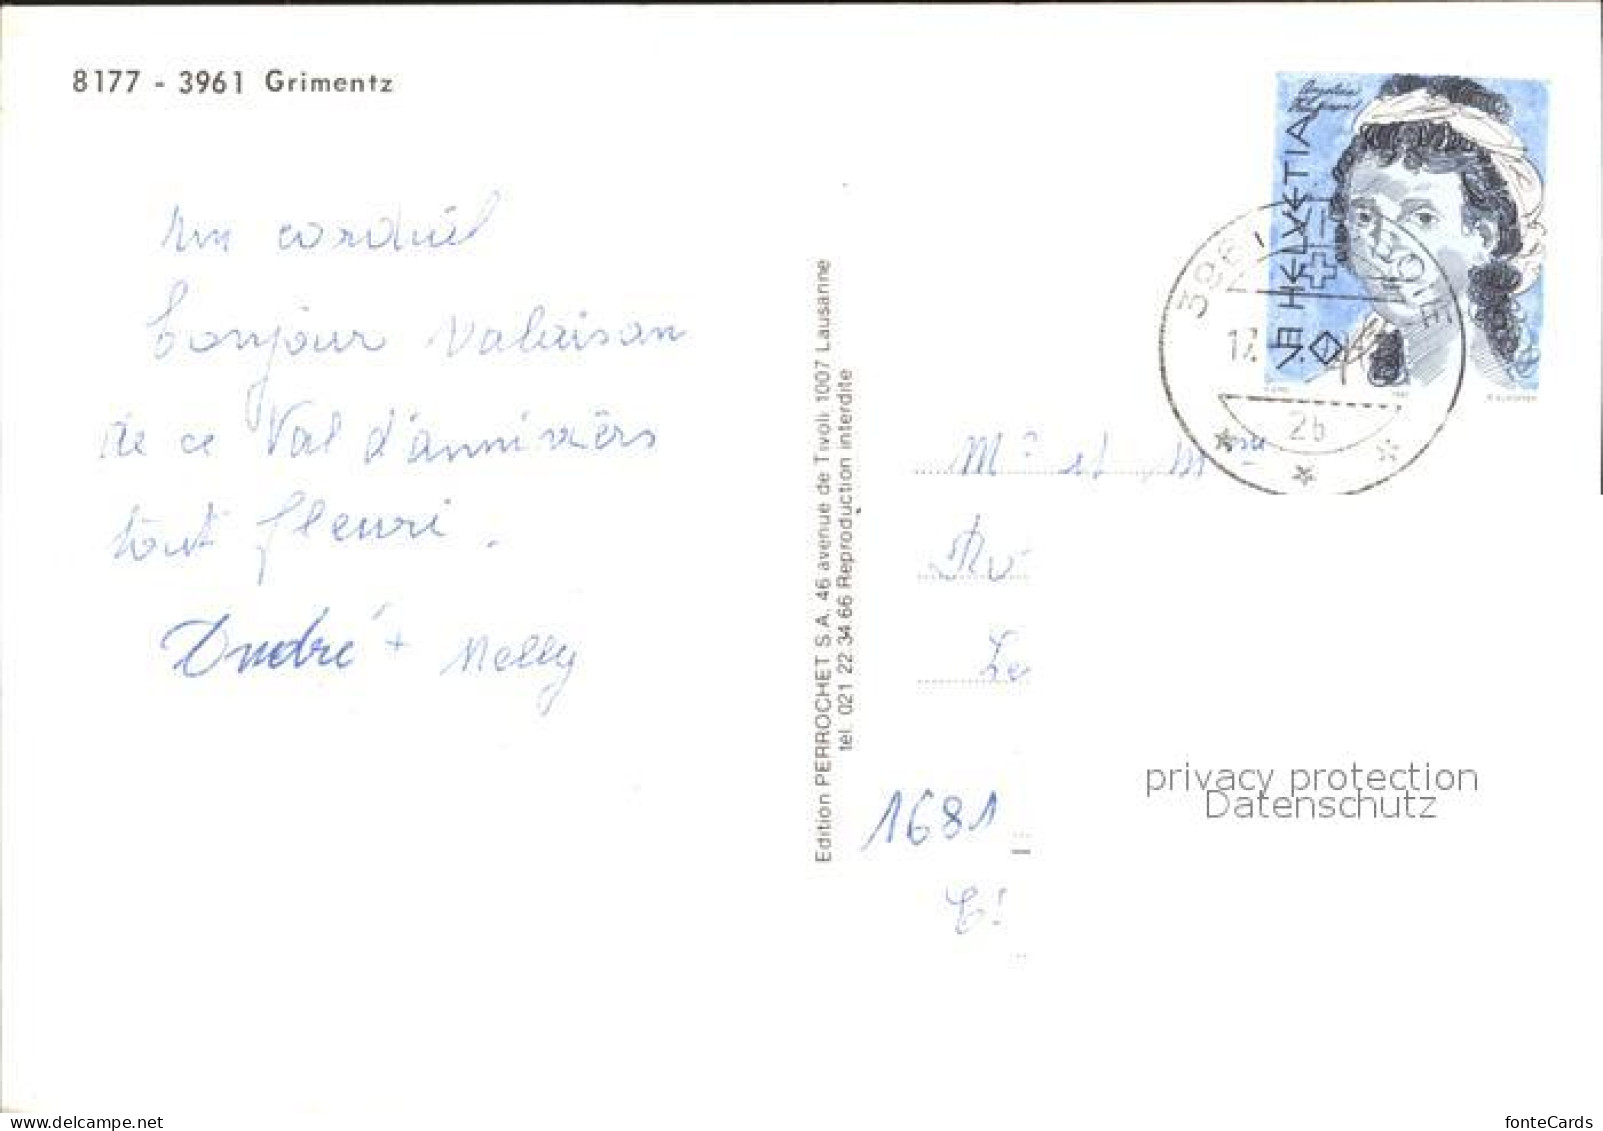 8177 - 3961 Grimentz
Un cordial
bonjour valaisan
de ce Val d'anniviers
tout fleuri.
André + Nelly
Edition PERROCHET S.A. 46 avenue de Tivoli 1007 Lausanne
tél. 021 22 34 66 Reproduction interdite
HELVETIA
26
Mr et Mme
Le
1681
privacy protection
Datenschutz
www.delcampe.net
fonteCards